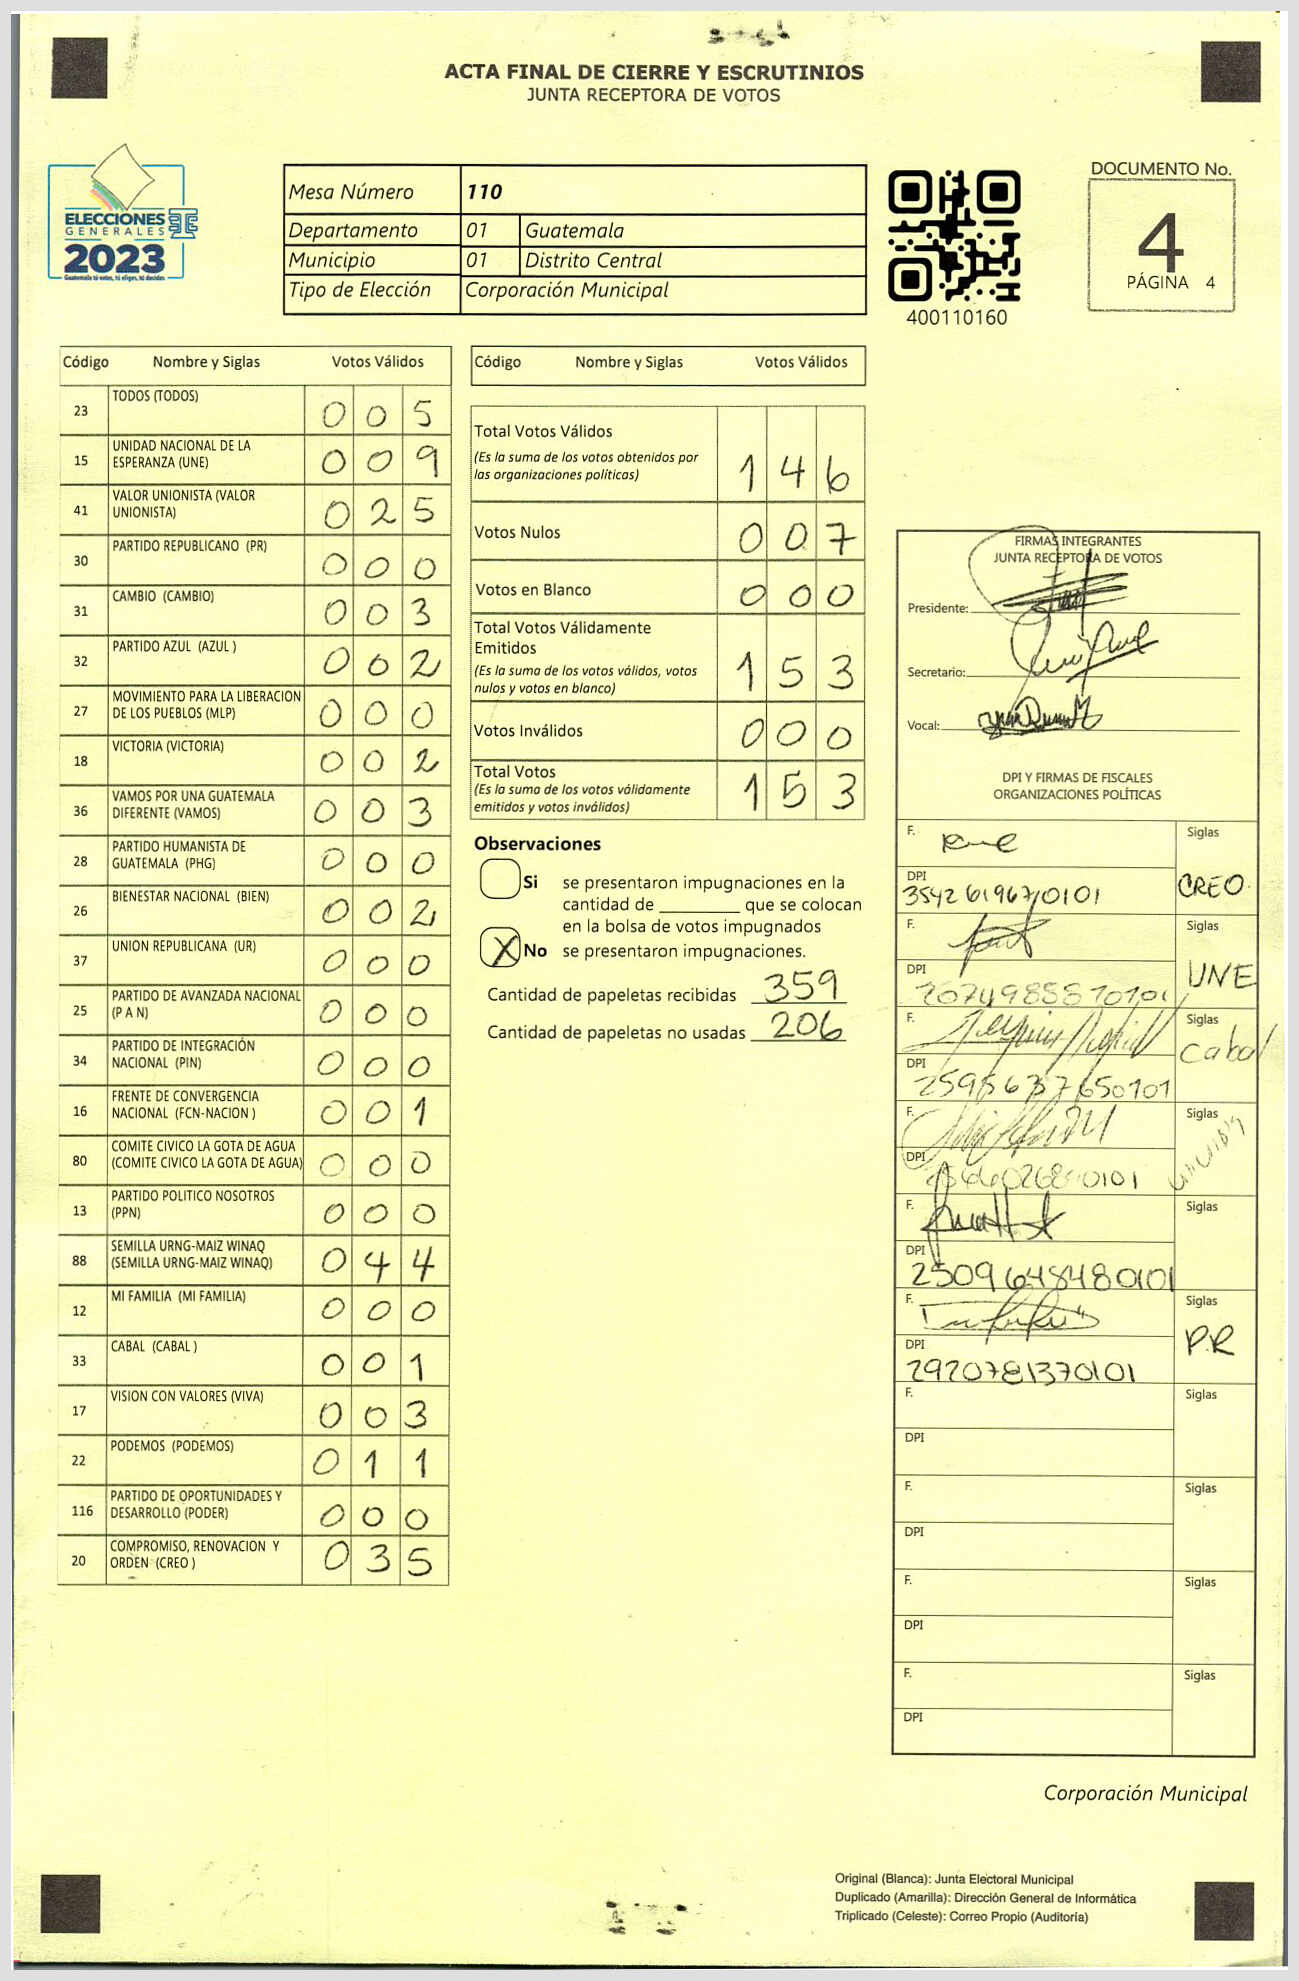 ACTA FINAL DE CIERRE Y ESCRUTINIOS
JUNTA RECEPTORA DE VOTOS
ELECCIONES
GENERALES
2023
Guatemala tú votas, tú eliges, tú decides
Mesa Número 110
Departamento 01 Guatemala
Municipio 01 Distrito Central
Tipo de Elección Corporación Municipal
400110160
DOCUMENTO No.
4
PÁGINA 4
Código Nombre y Siglas Votos Válidos
23 TODOS (TODOS) 0 0 5
15 UNIDAD NACIONAL DE LA
ESPERANZA (UNE) 0 0 9
41 VALOR UNIONISTA (VALOR
UNIONISTA) 0 2 5
30 PARTIDO REPUBLICANO (PR) 0 0 0
31 CAMBIO (CAMBIO) 0 0 3
32 PARTIDO AZUL (AZUL ) 0 0 2
27 MOVIMIENTO PARA LA LIBERACION
DE LOS PUEBLOS (MLP) 0 0 0
18 VICTORIA (VICTORIA) 0 0 2
36 VAMOS POR UNA GUATEMALA
DIFERENTE (VAMOS) 0 0 3
28 PARTIDO HUMANISTA DE
GUATEMALA (PHG) 0 0 0
26 BIENESTAR NACIONAL (BIEN) 0 0 2
37 UNION REPUBLICANA (UR) 0 0 0
25 PARTIDO DE AVANZADA NACIONAL
(P A N) 0 0 0
34 PARTIDO DE INTEGRACIÓN
NACIONAL (PIN) 0 0 0
16 FRENTE DE CONVERGENCIA
NACIONAL (FCN-NACION ) 0 0 1
80 COMITE CIVICO LA GOTA DE AGUA
(COMITE CIVICO LA GOTA DE AGUA) 0 0 0
13 PARTIDO POLITICO NOSOTROS
(PPN) 0 0 0
88 SEMILLA URNG-MAIZ WINAQ
(SEMILLA URNG-MAIZ WINAQ) 0 4 4
12 MI FAMILIA (MI FAMILIA) 0 0 0
33 CABAL (CABAL ) 0 0 1
17 VISION CON VALORES (VIVA) 0 0 3
22 PODEMOS (PODEMOS) 0 1 1
116 PARTIDO DE OPORTUNIDADES Y
DESARROLLO (PODER) 0 0 0
20 COMPROMISO, RENOVACION Y
ORDEN (CREO ) 0 3 5
Código Nombre y Siglas Votos Válidos
Total Votos Válidos
(Es la suma de los votos obtenidos por
las organizaciones políticas) 1 4 6
Votos Nulos 0 0 7
Votos en Blanco 0 0 0
Total Votos Válidamente
Emitidos
(Es la suma de los votos válidos, votos
nulos y votos en blanco) 1 5 3
Votos Inválidos 0 0 0
Total Votos
(Es la suma de los votos válidamente
emitidos y votos inválidos) 1 5 3
Observaciones
Si se presentaron impugnaciones en la
cantidad de ________ que se colocan
en la bolsa de votos impugnados
X No se presentaron impugnaciones.
Cantidad de papeletas recibidas 359
Cantidad de papeletas no usadas 206
FIRMAS INTEGRANTES
JUNTA RECEPTORA DE VOTOS
Presidente:
Secretario:
Vocal:
DPI Y FIRMAS DE FISCALES
ORGANIZACIONES POLÍTICAS
F. Siglas
DPI CREO.
3542 61967/0101
F. Siglas
DPI UNE
F. Siglas
DPI Cabal
F. Siglas
DPI
F. Siglas
DPI
2509648480101
F. Siglas
DPI P.R
2920781370101
F. Siglas
DPI
F. Siglas
DPI
F. Siglas
DPI
F. Siglas
DPI
Corporación Municipal
Original (Blanca): Junta Electoral Municipal
Duplicado (Amarilla): Dirección General de Informática
Triplicado (Celeste): Correo Propio (Auditoría)